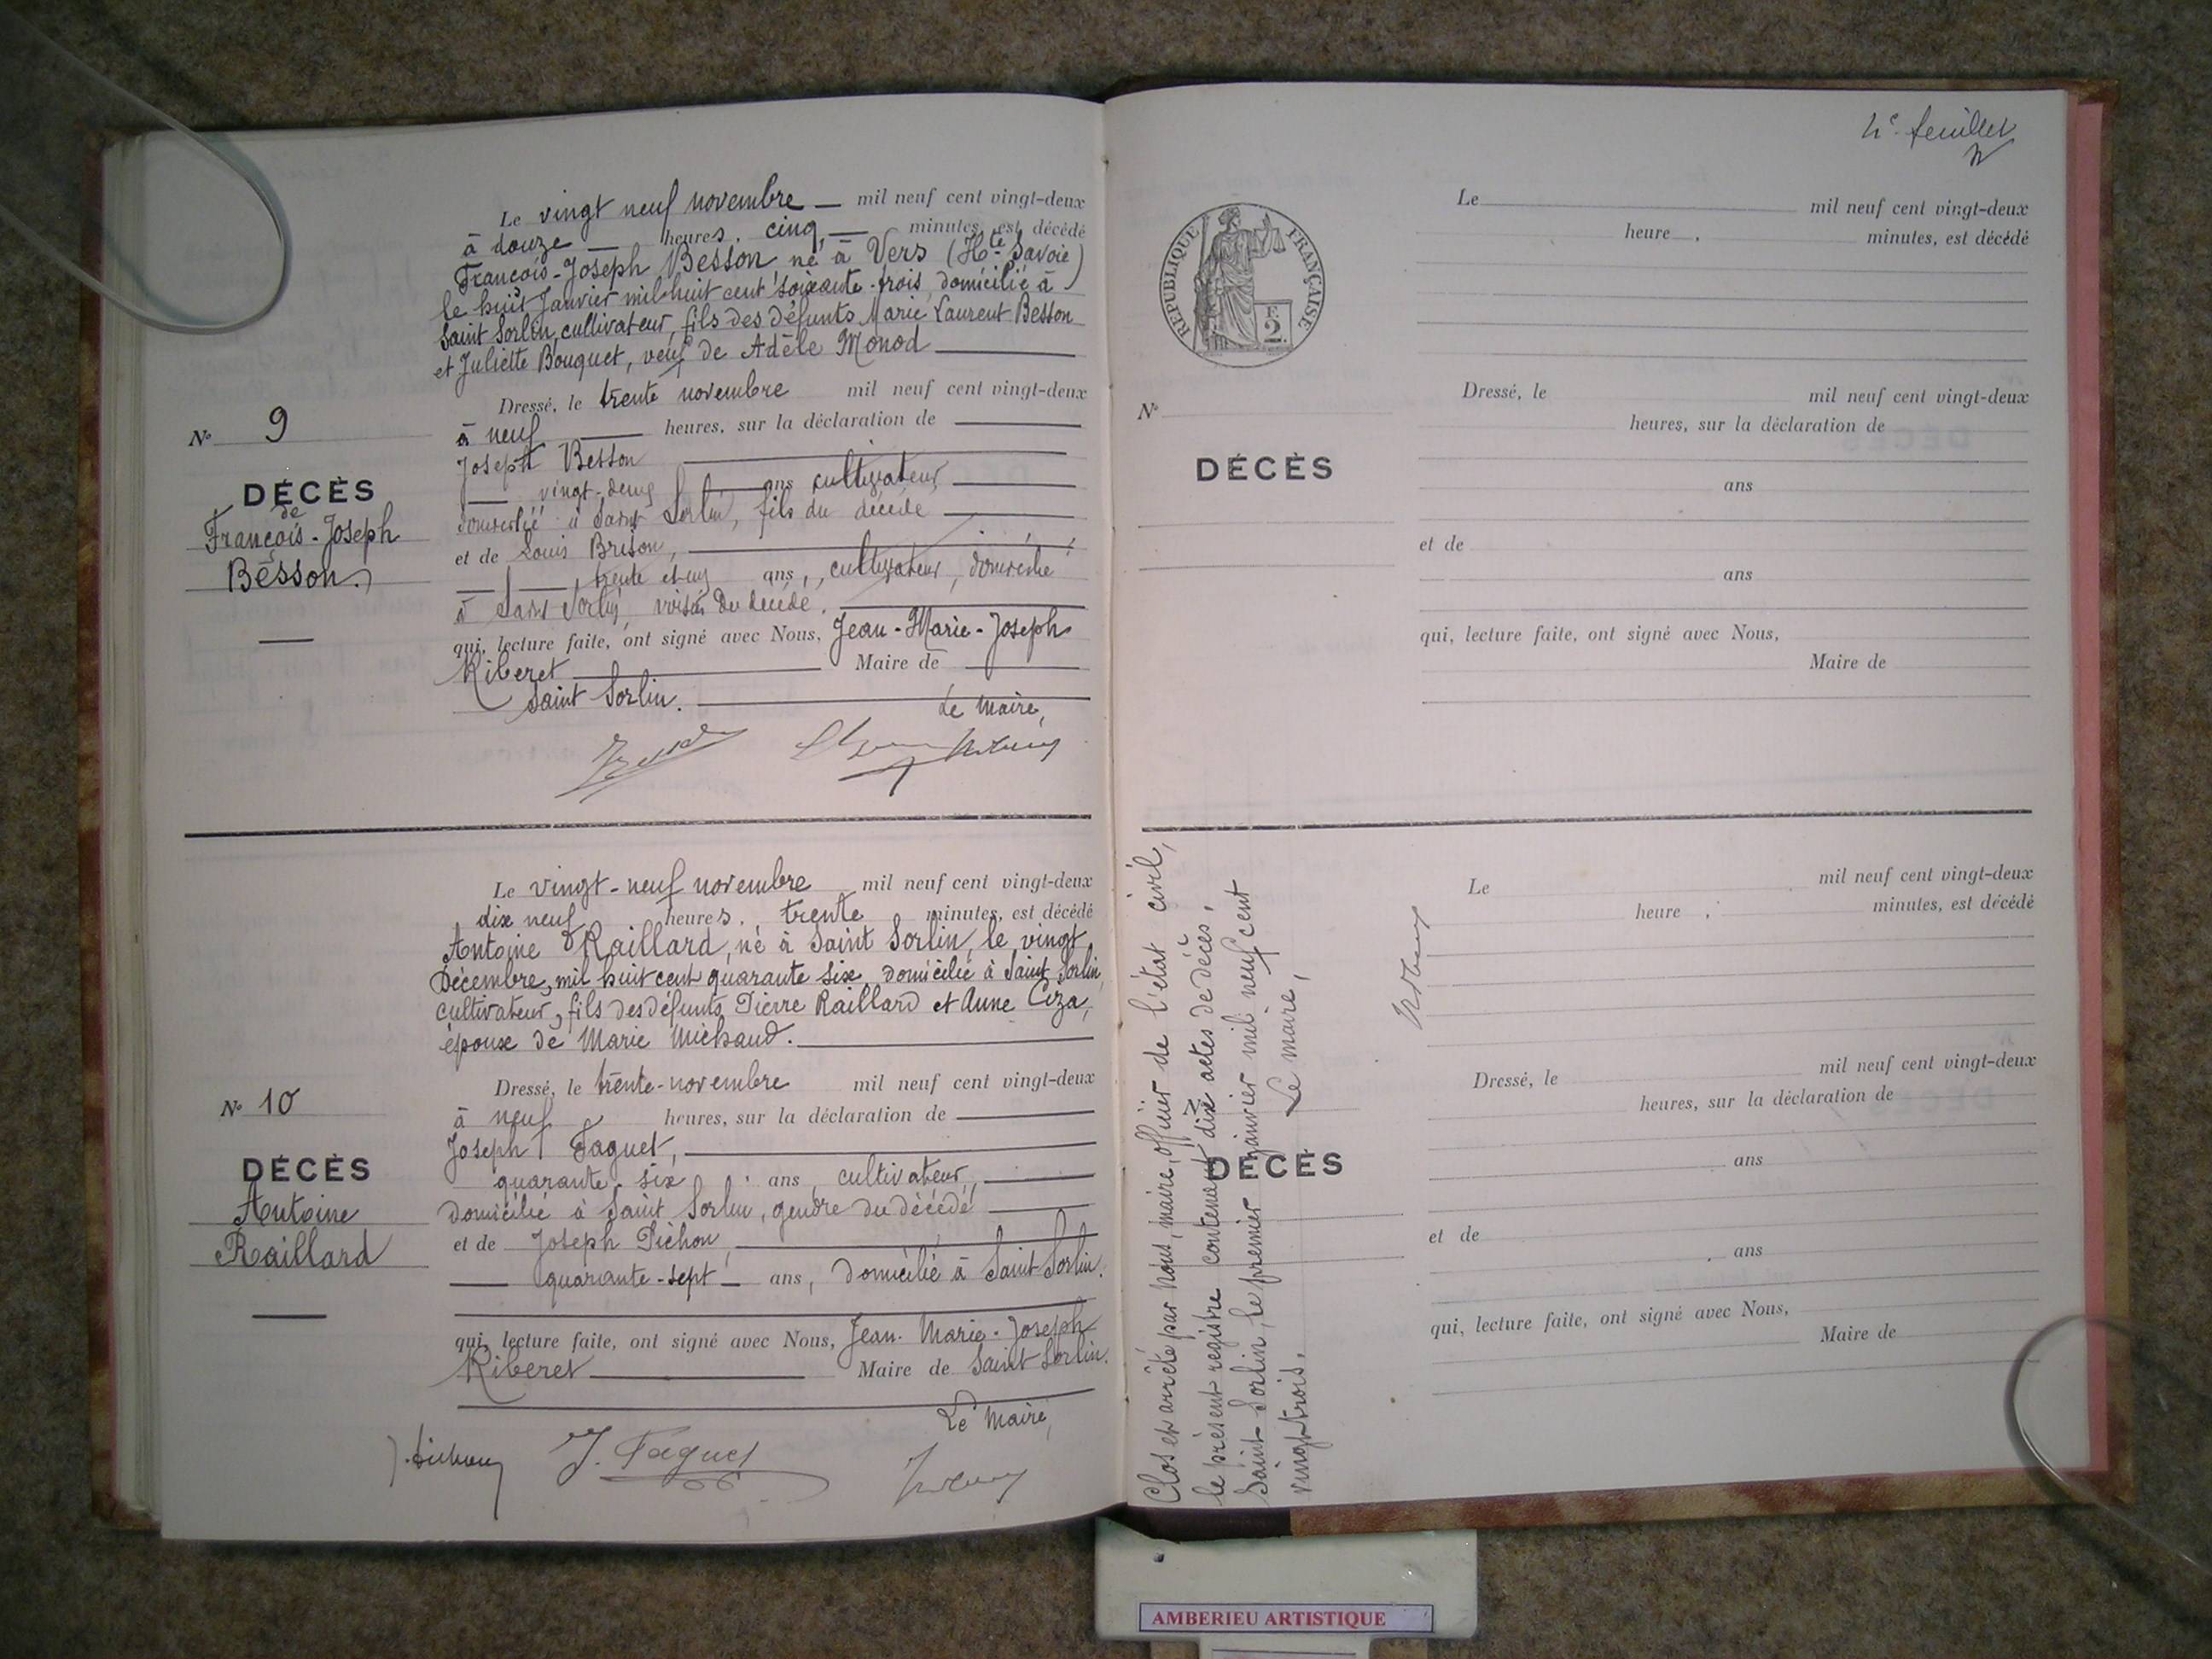 Le vingt neuf novembre mil neuf cent vingt-deux
à douze heures, cinq, minutes, est décédé
François-Joseph Besson né à Vers (Hte Savoie)
le huit Janvier mil huit cent soixante-trois, domicilié à
Saint Sorlin, cultivateur, fils des défunts Marie Laurent Besson
et Juliette Bouquet, veuf de Adèle Monod
Dressé, le trente novembre mil neuf cent vingt-deux
à neuf heures, sur la déclaration de
Joseph Besson
vingt-deux ans cultivateur
domicilié à Saint Sorlin, fils du décédé
et de Louis Brison,
trente et un ans, cultivateur, domicilié
à Saint Sorlin, voisin du décédé.
qui, lecture faite, ont signé avec Nous, Jean-Marie-Joseph
Riberet Maire de
Saint Sorlin.
Le Maire,
No 9
DÉCÈS
de
François-Joseph
Besson
Le vingt-neuf novembre mil neuf cent vingt-deux
dix neuf heures, trente minutes, est décédé
Antoine Raillard, né à Saint Sorlin, le vingt
Décembre, mil huit cent quarante six, domicilié à Saint Sorlin,
cultivateur, fils des défunts Pierre Raillard et Anne Ciza,
épouse de Marie Michaud.
Dressé, le trente-novembre mil neuf cent vingt-deux
à neuf heures, sur la déclaration de
Joseph Faguet,
quarante-six ans, cultivateur,
domicilié à Saint Sorlin, gendre du décédé
et de Joseph Pichon,
quarante-sept ans, domicilié à Saint Sorlin.
qui, lecture faite, ont signé avec Nous, Jean-Marie-Joseph
Riberet Maire de Saint Sorlin.
Le Maire,
J. Faguet
No 10
DÉCÈS
Antoine
Raillard
4e feuillet
RÉPUBLIQUE FRANÇAISE
2 F.
Le mil neuf cent vingt-deux
heure , minutes, est décédé
Dressé, le mil neuf cent vingt-deux
heures, sur la déclaration de
ans
et de
ans
qui, lecture faite, ont signé avec Nous,
Maire de
No
DÉCÈS
Le mil neuf cent vingt-deux
heure , minutes, est décédé
Dressé, le mil neuf cent vingt-deux
heures, sur la déclaration de
ans
et de
ans
qui, lecture faite, ont signé avec Nous,
Maire de
DÉCÈS
Clos et arrêté par Nous, maire, officier de l'état civil,
le présent registre contenant dix actes de décès,
Saint-Sorlin, le premier janvier mil neuf cent
vingt trois. Le maire,
AMBERIEU ARTISTIQUE